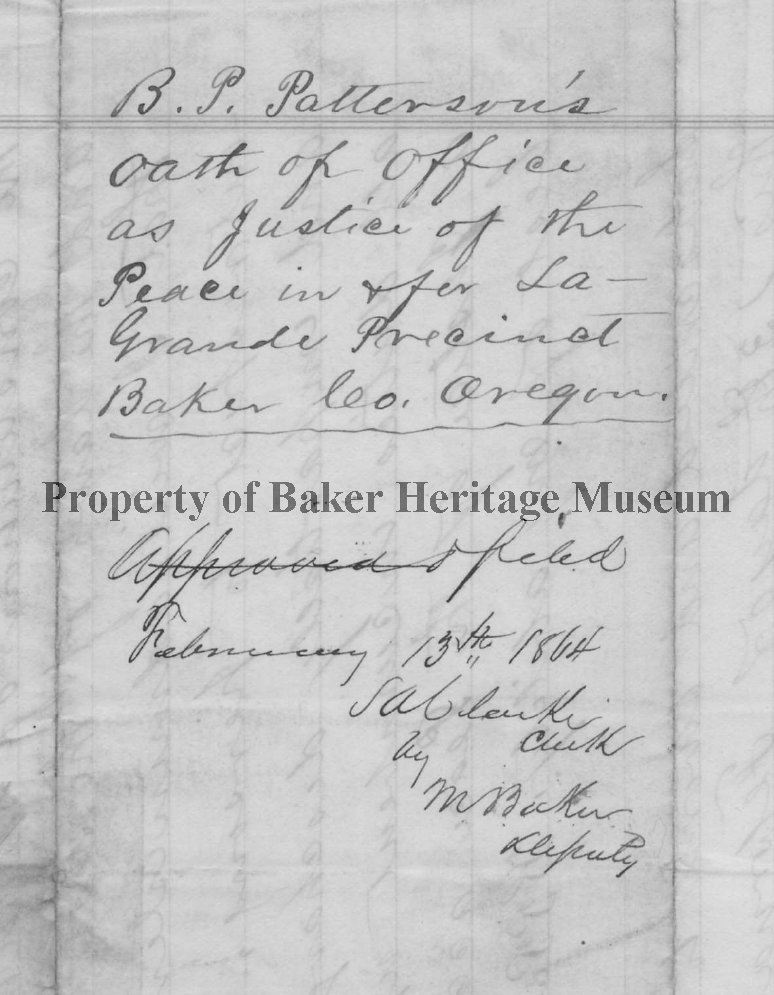 B. P. Patterson's
Oath of Office
as Justice of the
Peace in & for La-
Grande Precinct
Baker Co. Oregon.
Property of Baker Heritage Museum
Approved & filed
February 13th 1864
S A Clarke
Clerk
by
M Baker
Deputy